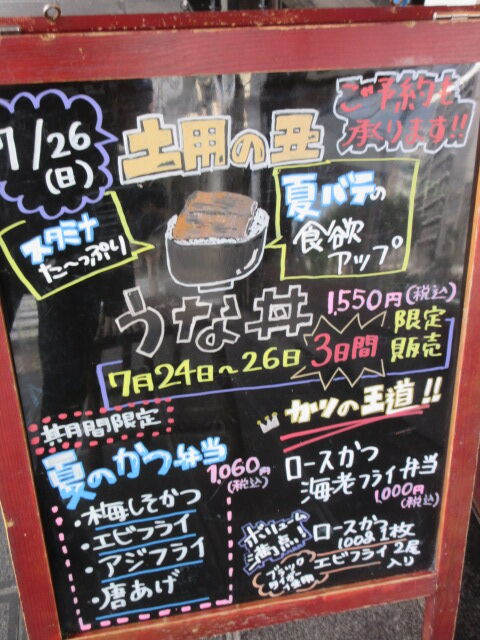 7/26
(日)
土用の丑
ご予約も
承ります!!
スタミナ
た〜っぷり
夏バテの
食欲
アップ
うな丼
1,550円(税込)
7月24日〜26日
3日間
限定
販売
期間限定
夏のかつ弁当
1,060円
(税込)
・梅しそかつ
・エビフライ
・アジフライ
・唐あげ
カツの王道!!
ロースかつ
海老フライ弁当
1,000円
(税込)
ボリューム
満点!
ロースかつ
100g 1枚
エビフライ2尾
入り